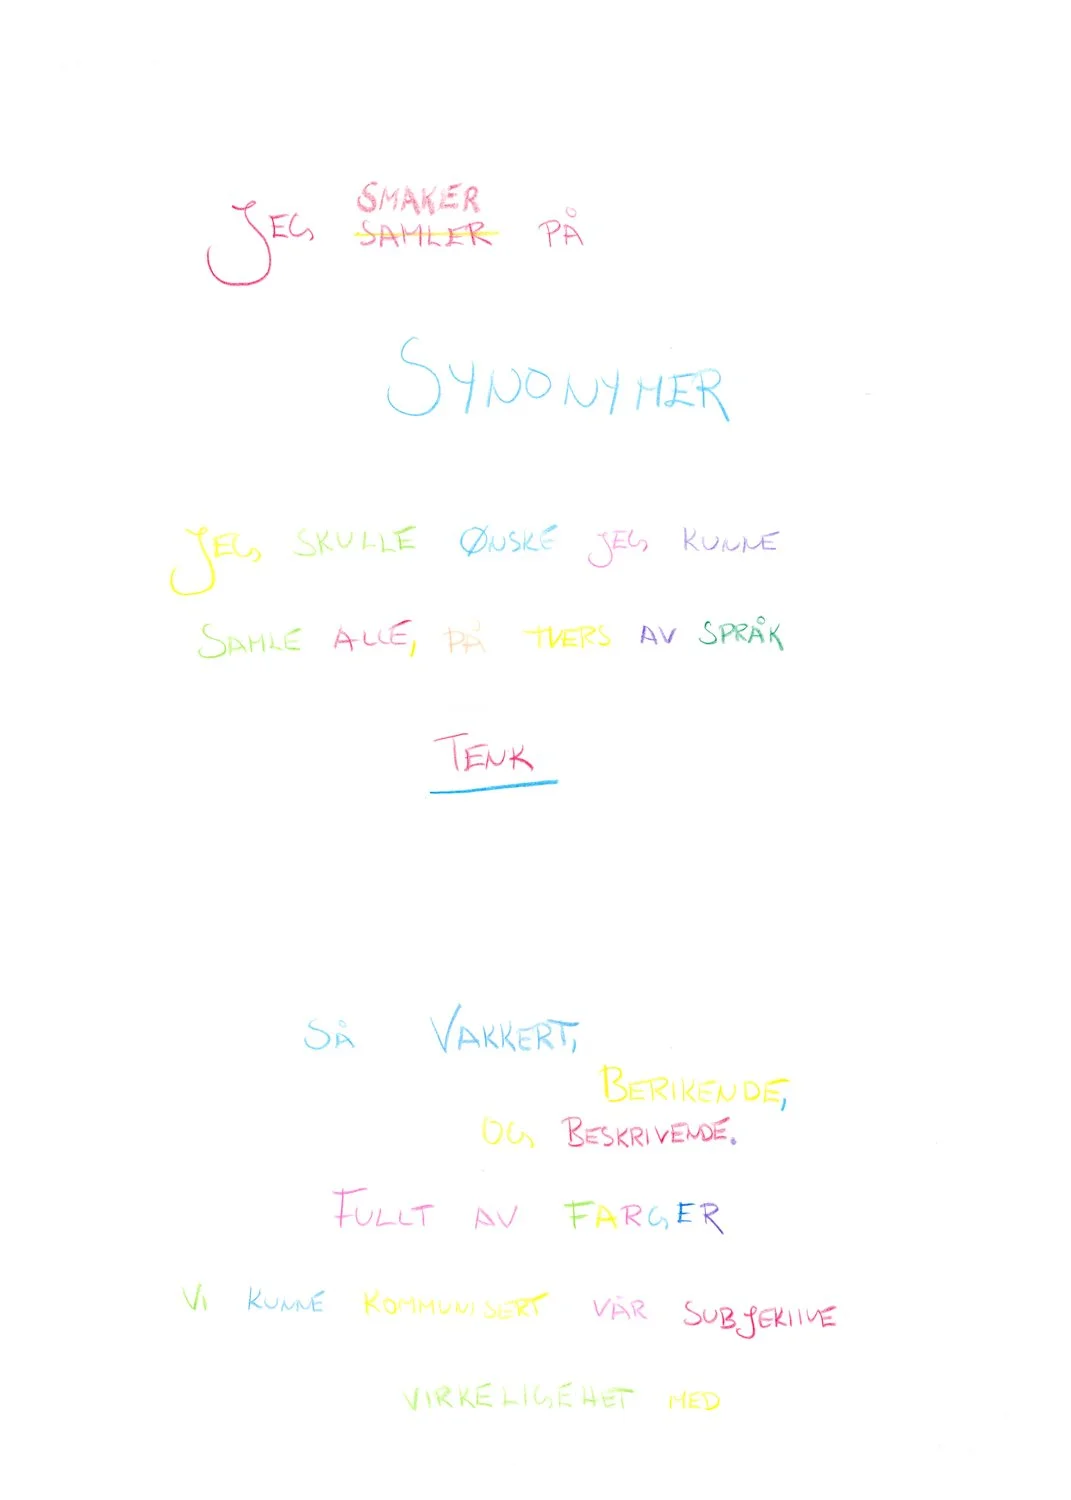 JEG SMAKER PÅ
SAMLER
SYNONYMER
JEG SKULLE ØNSKE JEG KUNNE
SAMLE ALLE, PÅ TVERS AV SPRÅK
TENK
SÅ VAKKERT,
BERIKENDE,
OG BESKRIVENDE.
FULLT AV FARGER
VI KUNNE KOMMUNISERT VÅR SUBJEKTIVE
VIRKELIGEHET MED